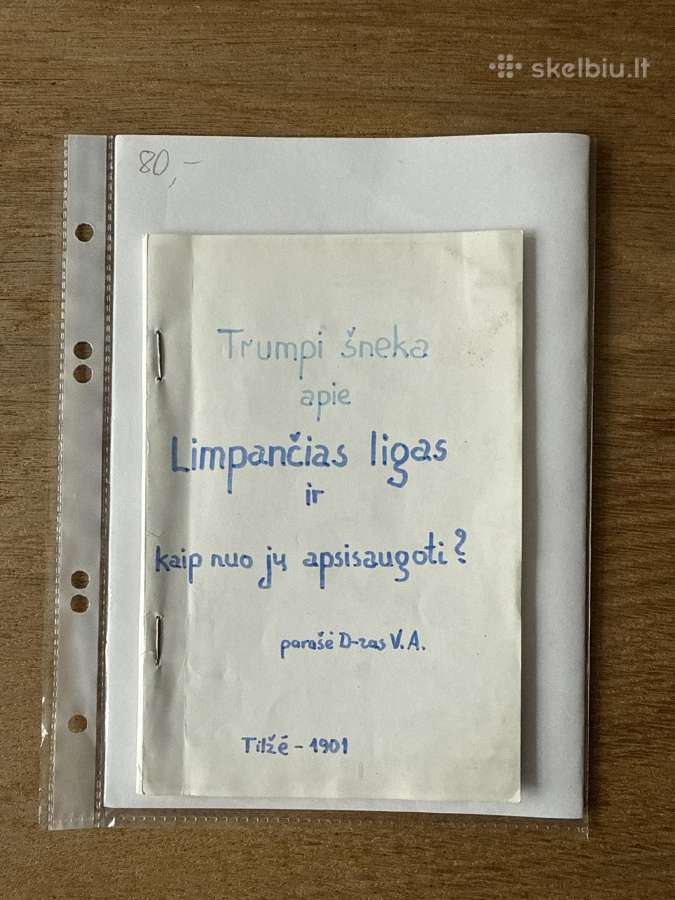 skelbiu.lt
80,-
Trumpi šneka
apie
Limpančias ligas
ir
kaip nuo jų apsisaugoti?
parašė D-ras V.A.
Tilžė - 1901